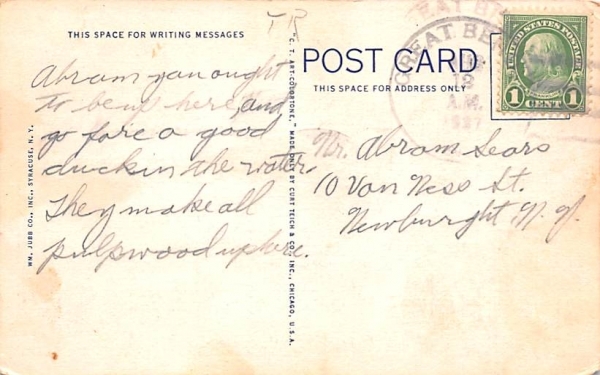 TR
THIS SPACE FOR WRITING MESSAGES
Abram you ought
to be up here, and
go fore a good
duck in the water.
They make all
pulpwood up here.
WM. JUBB CO., INC., SYRACUSE, N. Y.
"C. T. ART-COLORTONE," MADE ONLY BY CURT TEICH & CO., INC., CHICAGO, U.S.A.
POST CARD
THIS SPACE FOR ADDRESS ONLY
GREAT BE
18
A.M.
UNITED STATES POSTAGE
1 CENT 1
Mr. Abram Sears
10 Van Ness St.
Newburght, N. Y.